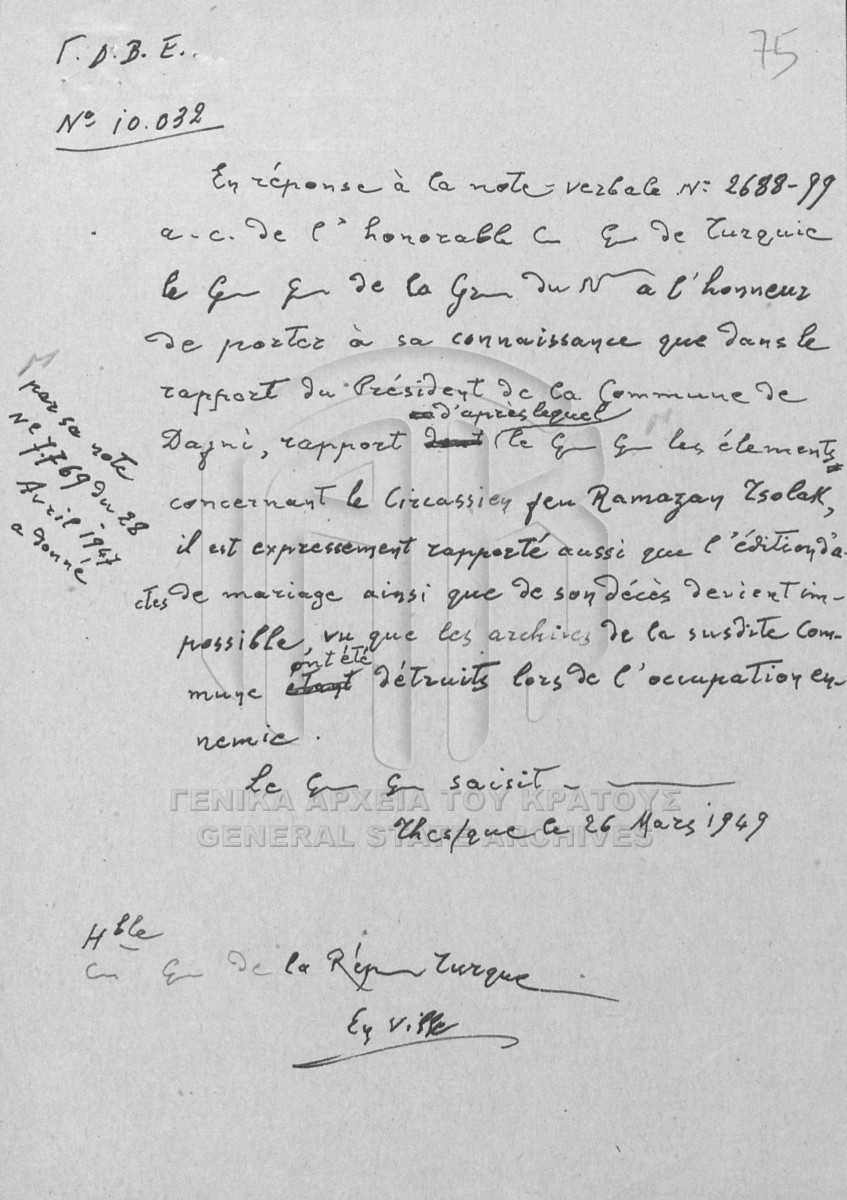 75
Γ.D.B.E.
No 10.032
En réponse à la note-verbale No 2688-99
a.c. de l'honorable C G de Turquie
le G G de la Gr du N a l'honneur
de porter à sa connaissance que dans le
rapport du Président de la Commune de
d'après lequel
Dajni, rapport dont le G G les élements
concernant le Circassien feu Ramazan Tsolak,
il est expressement rapporté aussi que l'édition d'a-
ctes de mariage ainsi que de son décès devient im-
possible, vu que les archives de la susdite Com-
ont été
mune étant détruits lors de l'occupation en-
nemie.
par sa note
No 7769 du 28
Avril 1947
a donné
Le G G saisit -
Thes/que le 26 Mars 1949
Hble
C G de la Rép Turque
En Ville
ΓΕΝΙΚΑ ΑΡΧΕΙΑ ΤΟΥ ΚΡΑΤΟΥΣ
GENERAL STATE ARCHIVES